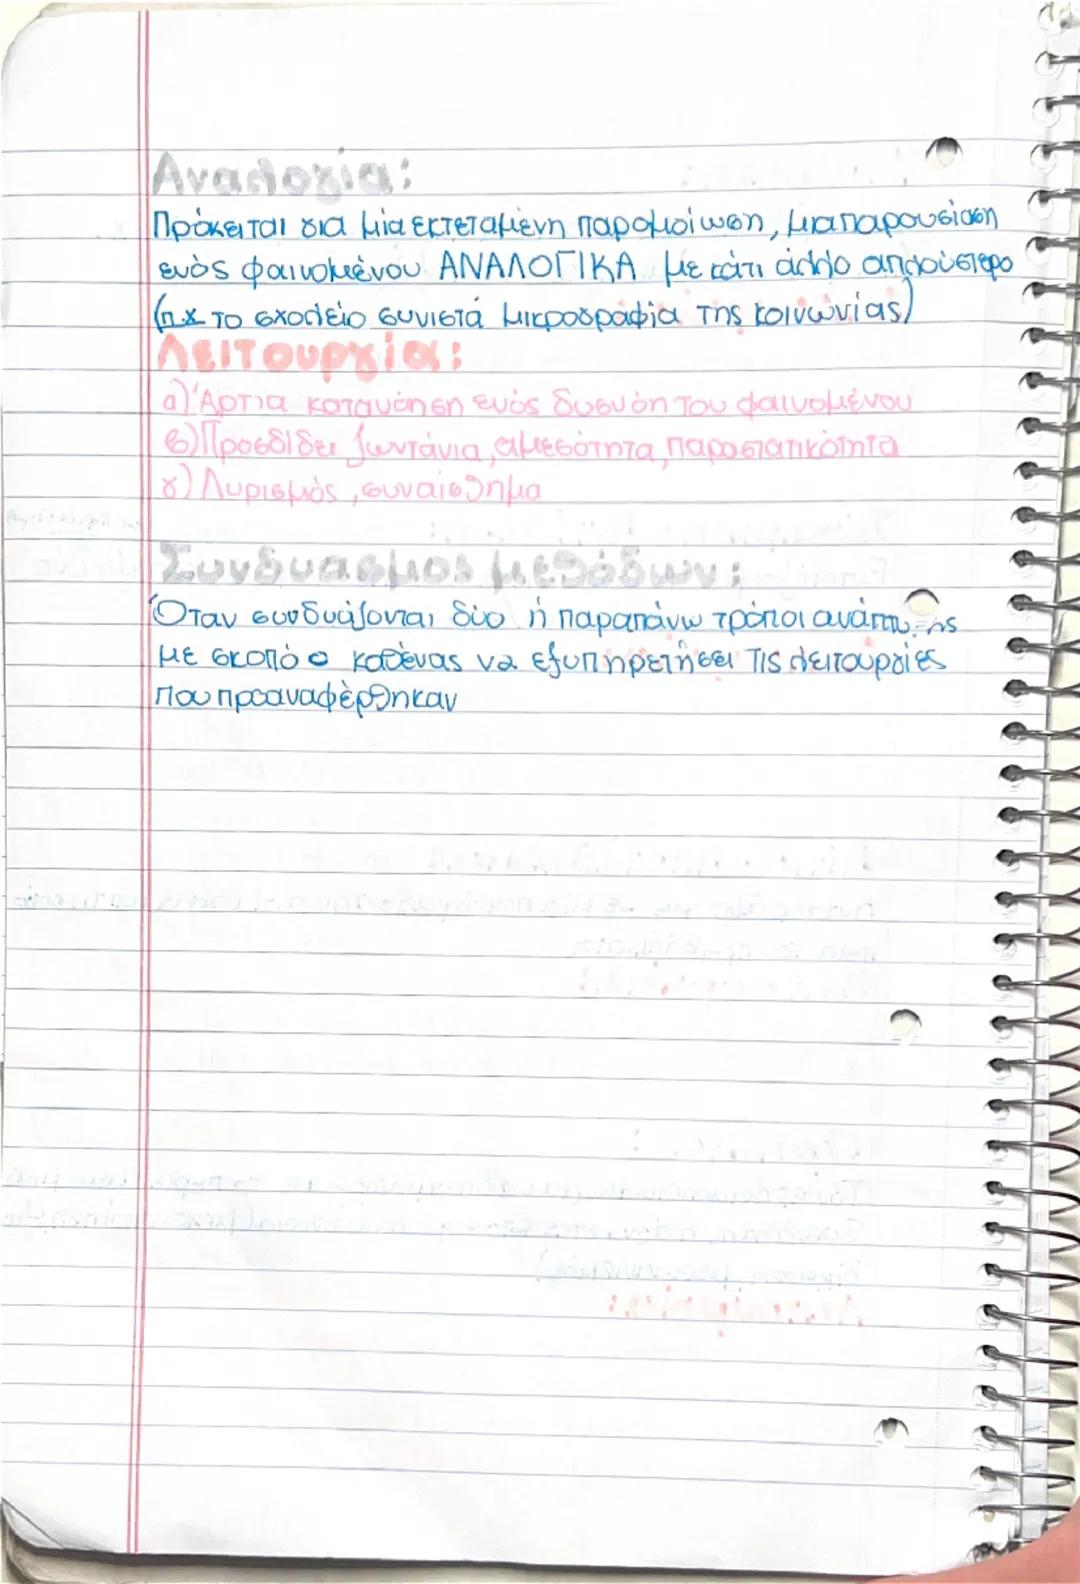 Αναλογία:
Πρόκειται για μία εκτεταμένη παρομοίωση, μια παρουσίαση
ενὸς φαινομένου ΑΝΑΛΟΓΙΚΑ με κάτι άλλο απλούστερο
(π.χ το σχολείο συνιστά μικρογραφία της κοινωνίας)
Λειτουργία:
α) Άρτια κατανόηση ενὸς δυσνόητου φαινομένου
β) Προσδίδει ζωντάνια, αμεσότητα, παραστατικότητα
γ) Λυρισμός, συναίσθημα
Συνδυασμος μεθόδων:
Όταν συνδυάζονται δύο ή παραπάνω τρόποι
με σκοπό ο καθένας να εξυπηρετήσει τις λειτουργίες
που προαναφέρθηκαν